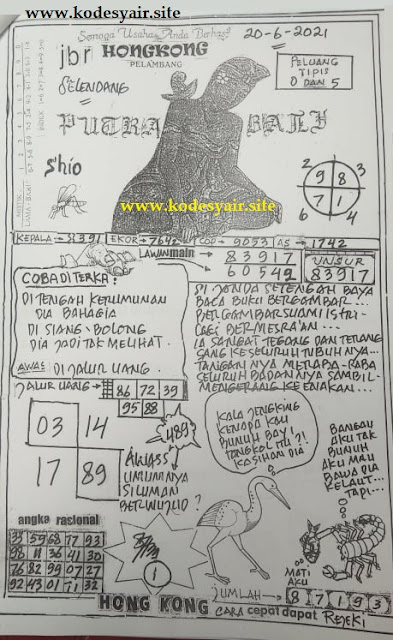 www.kodesyair.site
Semoga Usaha Anda Berhasil
20-6-2021
jbr HONGKONG
PELAMBANG
PELUANG
TIPIS
0 DAN 5
SELENDANG
PUTRA BALI
Shio
www.kodesyair.site
2 3
9 8
7 1
6 4
KEPALA → 8391 EKOR → 7642 COP → 9053 AS → 1742
LAWAN main → 83917
60542
UNSUR
83917
COBA DITERKA:
DI TENGAH KERUMUNAN
DIA BAHAGIA
DI SIANG BOLONG
DIA JADI TAK MELIHAT.
AWAS: DI JALUR UANG.
SI JANDA SETENGAH BAYA
BACA BUKU BERGAMBAR...
BERGAMBAR SUAMI ISTRI
LAGI BERMESRA'AN...
IA SANGAT TEGANG DAN
SANG KESELURUH TUBUHNYA...
TANGAN NYA MERABA-RABA
SELURUH BADANNYA SAMBIL
MENGERANG KEENAKAN...
JALUR UANG →
86 72 39
95 88
03 14
17 89
489
AWASS
UMUMNYA
SILUMAN
BERWUJUD?
KALA JENGKING
KENAPA KAU
BUNUH BAYI
TONGKOL ITU?!
KASIHAN DIA
BANGAU
AKU TAK
BUNUH
AKU MAU
BAWA DIA
KELAUT...
TAPI...
angka rasional
35 59 68 77 93
98 11 36 41 30
76 82 99 07 27
92 43 01 71 32
1
MATI
AKU
JUMLAH → 8 7 1 9 3
HONG KONG CARA cepat dapat REJEKI